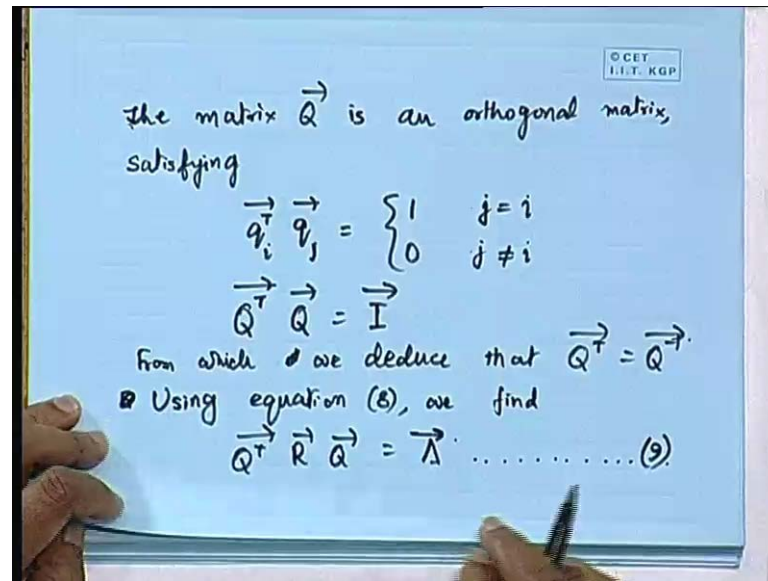 © CET
I.I.T. KGP
The matrix Q⃗ is an orthogonal matrix,
satisfying
q⃗ᵢᵀ q⃗ⱼ = { 1 j = i
0 j ≠ i
Q⃗ᵀ Q⃗ = I⃗
From which we deduce that Q⃗ᵀ = Q⃗⁻¹.
Using equation (8), we find
Q⃗ᵀ R⃗ Q⃗ = Λ⃗ ............(9)